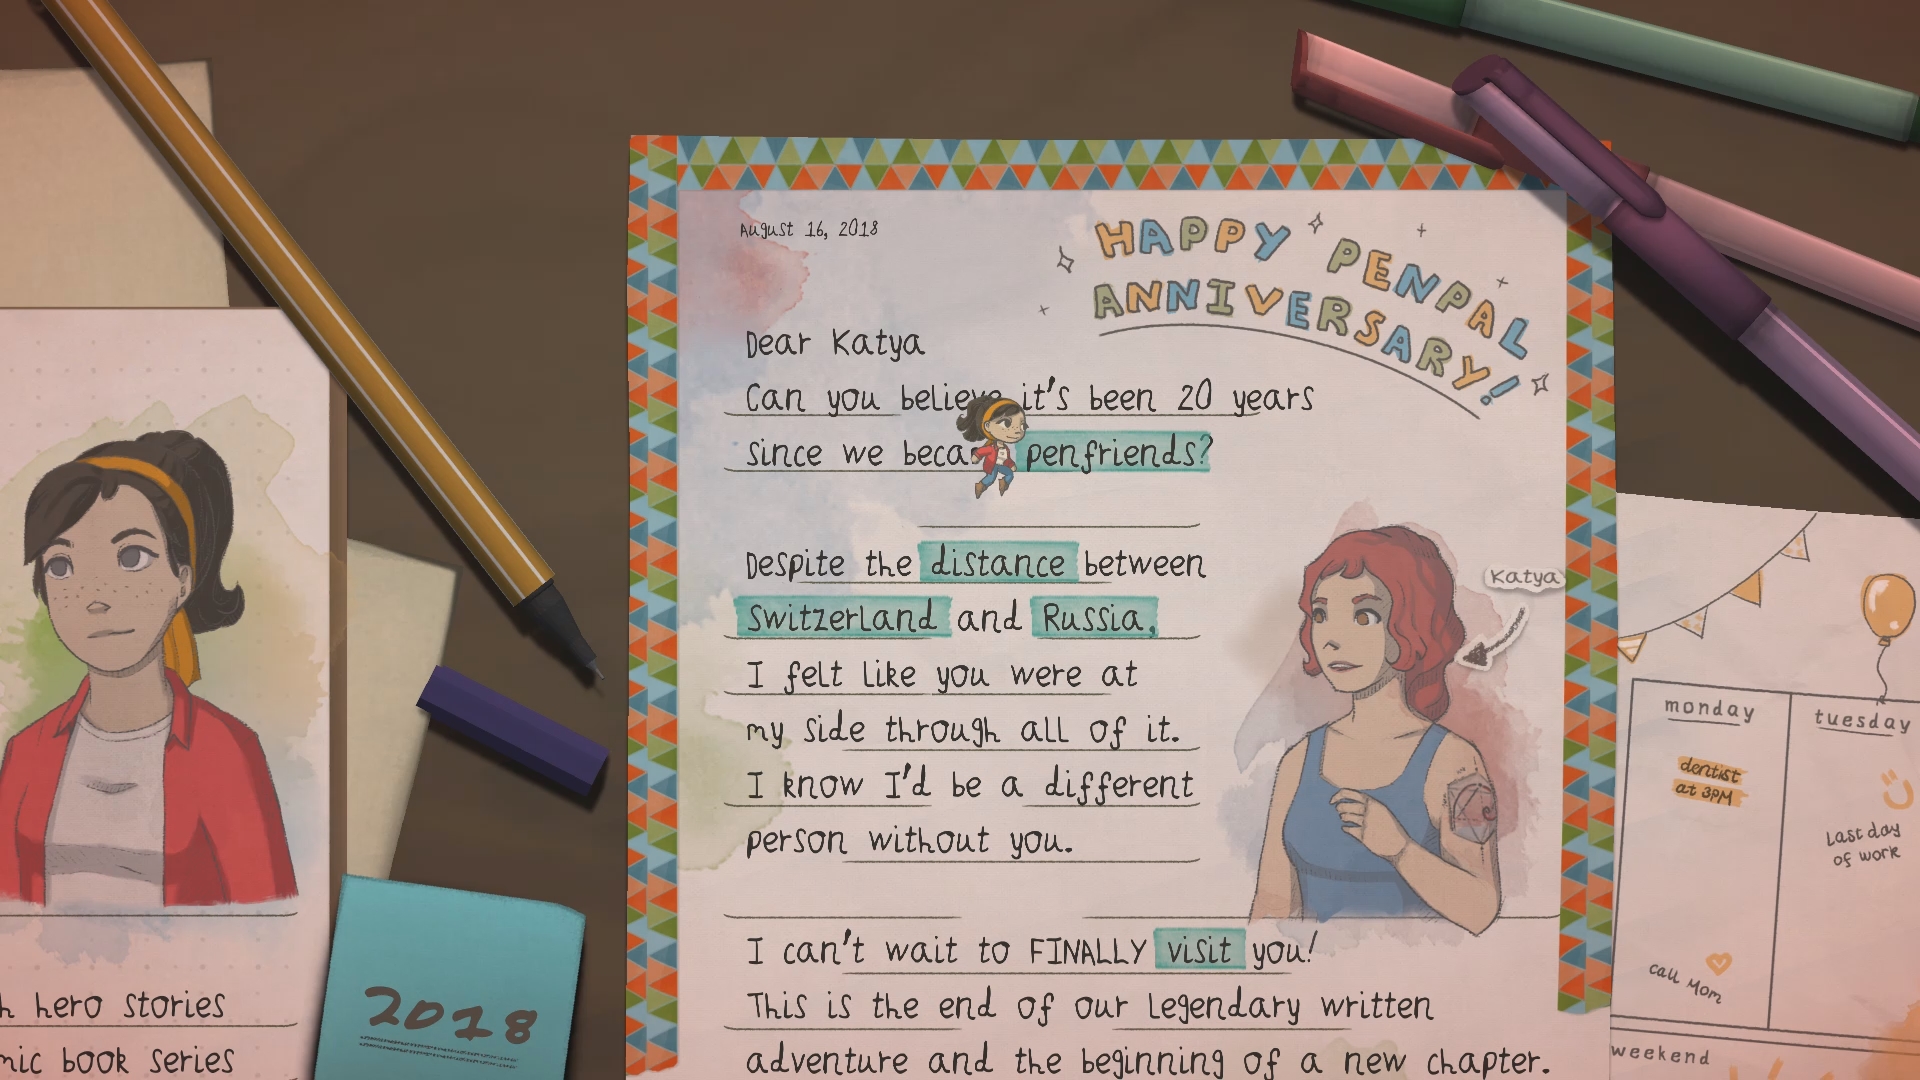 August 16, 2018
HAPPY PENPAL
ANNIVERSARY!
Dear Katya
Can you believe it's been 20 years
since we beca penfriends?
Despite the distance between
Switzerland and Russia,
I felt like you were at
my side through all of it.
I know I'd be a different
person without you.
Katya
I can't wait to FINALLY visit you!
This is the end of our legendary written
adventure and the beginning of a new chapter.
h hero stories
mic book series
2018
monday
tuesday
dentist
at 3PM
Last day
of work
call Mom
weekend